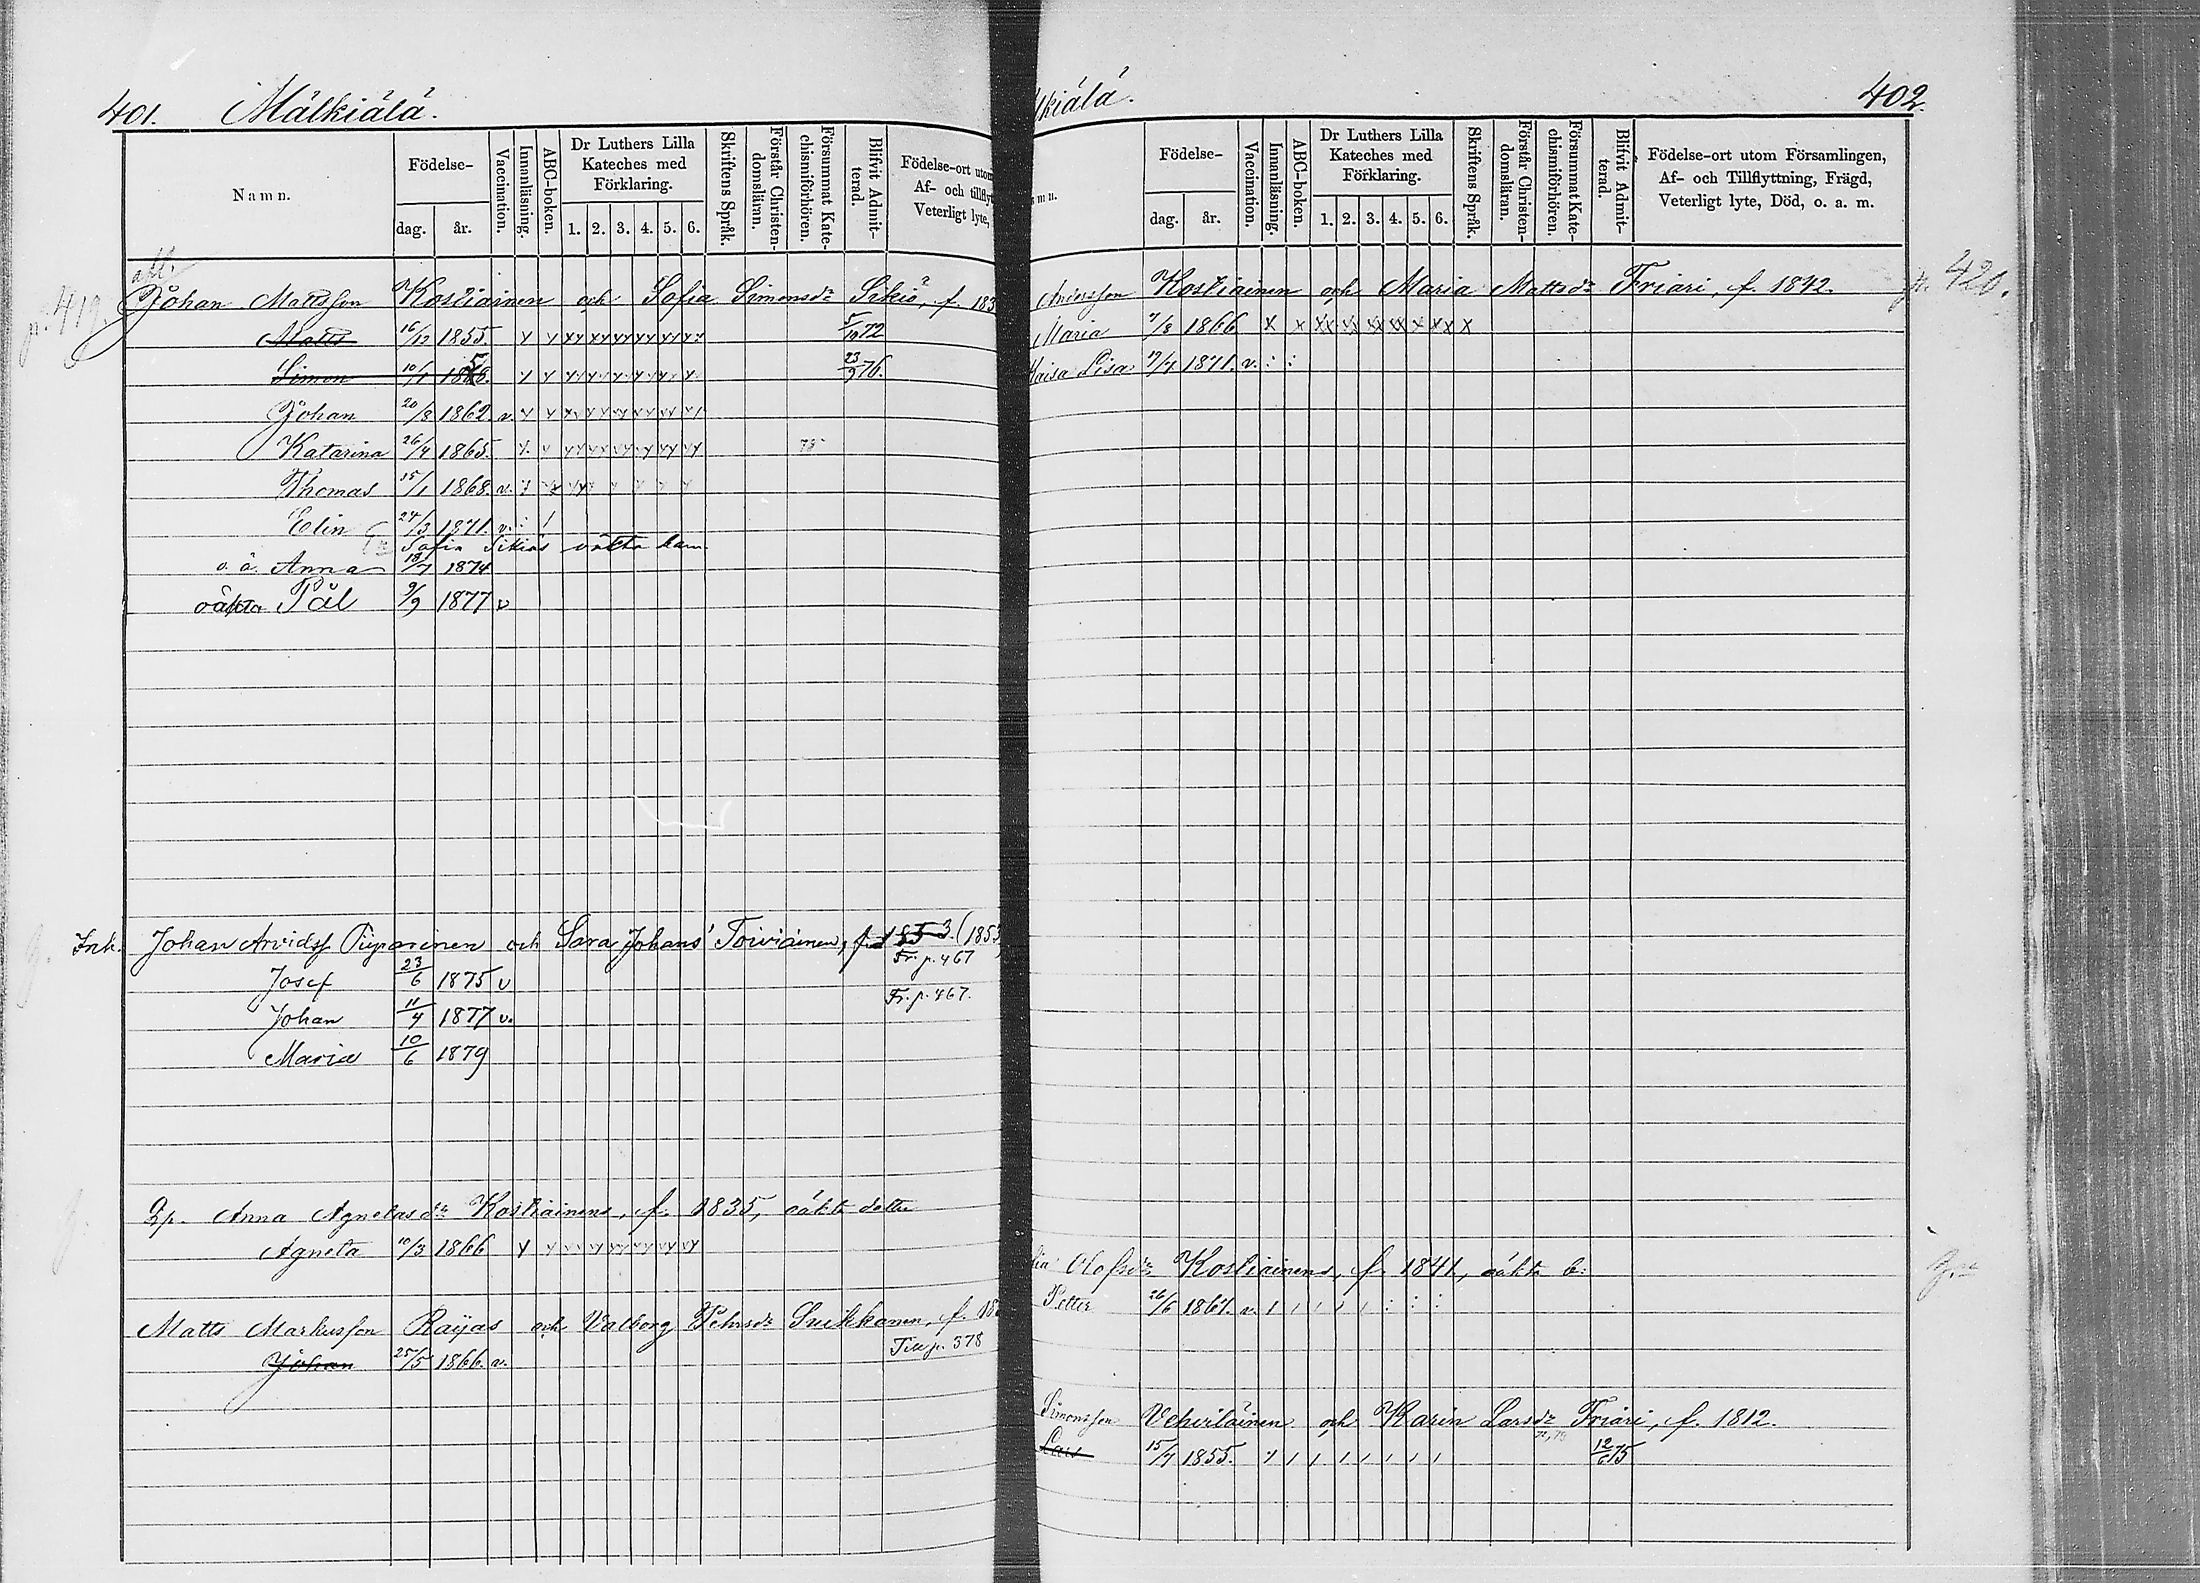 401. Mälkiälä.
Namn. Födelse- dag. år. Vaccination. Innanläsning. ABC-boken. Dr Luthers Lilla Kateches med Förklaring. 1. 2. 3. 4. 5. 6. Skriftens Språk. Förstår Christendomsläran. Försummat Katechismiförhören. Blifvit Admitterad. Födelse-ort utom Af- och tillfly Veterligt lyte,
p. 419.
Johan Mattsson Kostiainen och Sofia Simonsdr Sikiö, f. 183
Matts 16/12 1855. 5/10 72
Simon 10/1 1858. 23/9 76.
Johan 20/8 1862. v.
Katarina 26/4 1865. 78
Thomas 15/1 1868. v.
Elin 24/3 1871. v.
Sofia Sikiös oäkta barn
o. ä. Anna 18/7 1874
oäkta Pål 9/9 1877 v
Inh. Johan Arvidsf och Sara Johans Toiviainen, f. 1853. (1853)
Fr. p. 467
Josef 23/6 1875 v
Fr. p. 467.
Johan 11/4 1877 v.
Maria 10/6 1879
Qp. Anna Agnetasdr Kostiainens, f. 1835, oäkta dotter
Agneta 10/3 1866
Matts Markusson Raijas och Valborg Pehrsdr Suikkanen, f. 18
Till p. 378
Johan 25/5 1866. v.
lkiälä. 402.
mn. Födelse- dag. år. Vaccination. Innanläsning. ABC-boken. Dr Luthers Lilla Kateches med Förklaring. 1. 2. 3. 4. 5. 6. Skriftens Språk. Förstår Christendomsläran. Försummat Katechismiförhören. Blifvit Admitterad. Födelse-ort utom Församlingen, Af- och Tillflyttning, Frägd, Veterligt lyte, Död, o. a. m.
Andersson Kostiainen och Maria Mattsdr Friari, f. 1842. p. 420.
Maria 7/8 1866.
Maisa Lisa 17/7 1871. v.
Olofsdr Kostiainens, f. 1841, oäkta b:
Petter 26/6 1867. v.
Simonsson Vehviläinen och Karin Larsdr Friari, f. 1812.
Lars 15/7 1855. 12/6 75